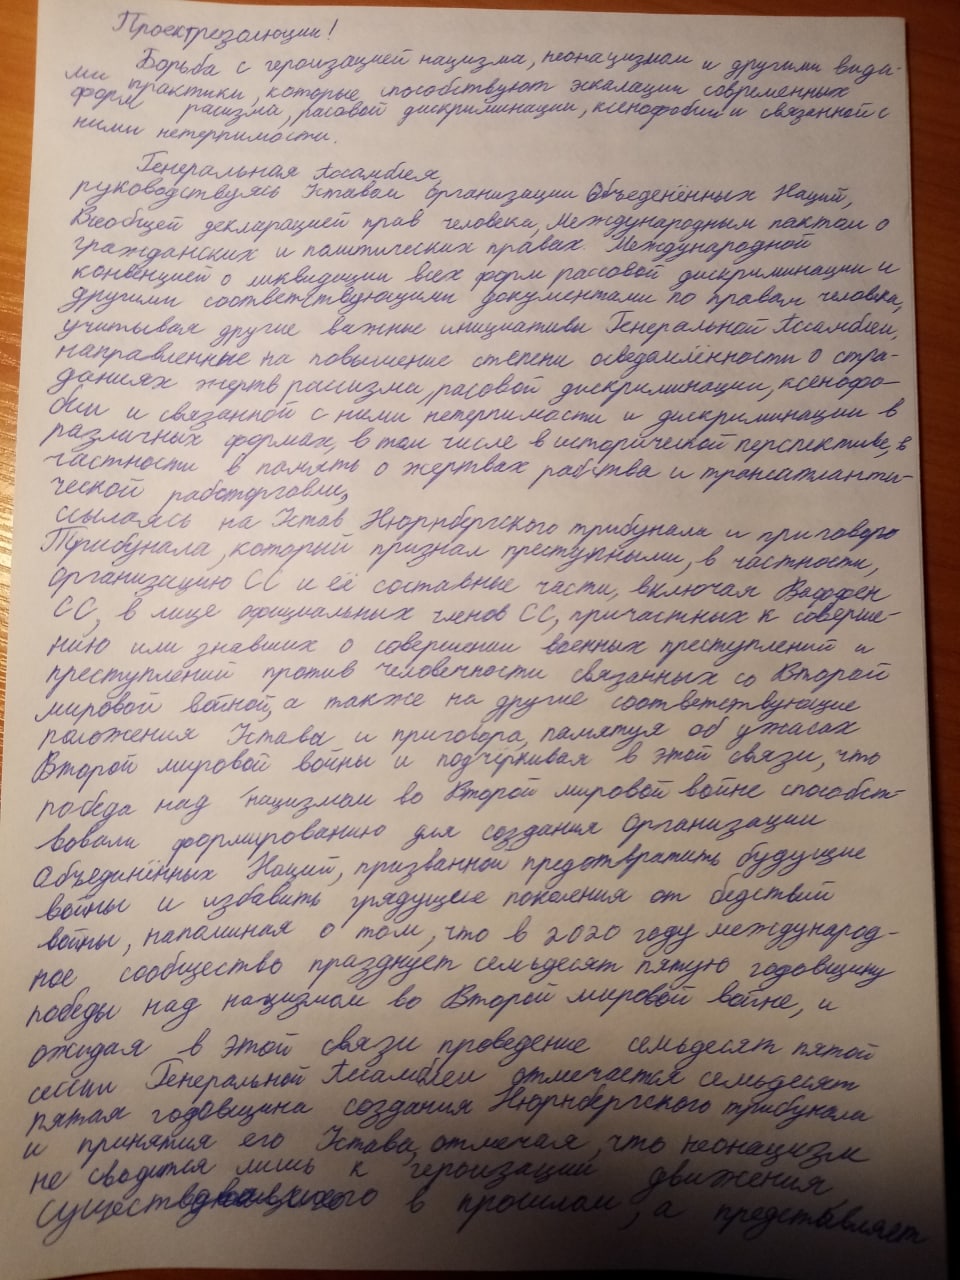 Проектрезолюции!
Борьба с героизацией нацизма, неонацизмом и другими вида-
ми практики, которые способствуют эскалации современных
форм расизма, расовой дискриминации, ксенофобии и связанной с
ними нетерпимости.
Генеральная Ассамблея,
руководствуясь Уставом Организации Объеденённых Наций,
Всеобщей декларацией прав человека, Международным пактом о
гражданских и политических правах Международной
конвенцией о ликвидации всех форм рассовой дискриминации и
другими соответствующими документами по правам человека,
учитывая другие важные инициативы Генеральной Ассамблеи,
направленные на повышение степени осведомлённости о стра-
даниях жертв рассизма, расовой дискриминации, ксенофо-
бии и связанной с ними нетерпимости и дискриминации в
различных формах, в том числе в исторической перспективе, в
частности в память о жертвах рабства и трансатланти-
ческой работорговли,
ссылаясь на Устав Нюрнбергского трибунала и приговоро
Трибунала, который признал преступными, в частности,
организацию СС и её составные части, включая Ваффен
СС, в лице официальных членов СС, причастных к соверше-
нию или знавших о совершении военных преступлений и
преступлений против человечности связанных со Второй
мировой войной, а также на другие соответствующие
положения Устава и приговора, памятуя об ужасах
Второй мировой войны и подчёркивая в этой связи, что
победа над нацизмом во Второй мировой войне способст-
вовали формированию для создания Организации
Объединённых Наций, призванной предотвратить будущие
войны и избавить грядущее поколения от бедствий
войны, напоминая о том, что в 2020 году международ-
ное сообщество празднует семьдесят пятую годовщину
победы над нацизмом во Второй мировой войне, и
ожидая в этой связи проведение семьдесят пятой
сессии Генеральной Ассамблеи отмечается семьдесят
пятая годовщина создания Нюрнбергского трибунала
и принятия его Устава, отмечая, что неонацизм
не сводится лишь к героизации движения
существовавшего в прошлом, а представляет